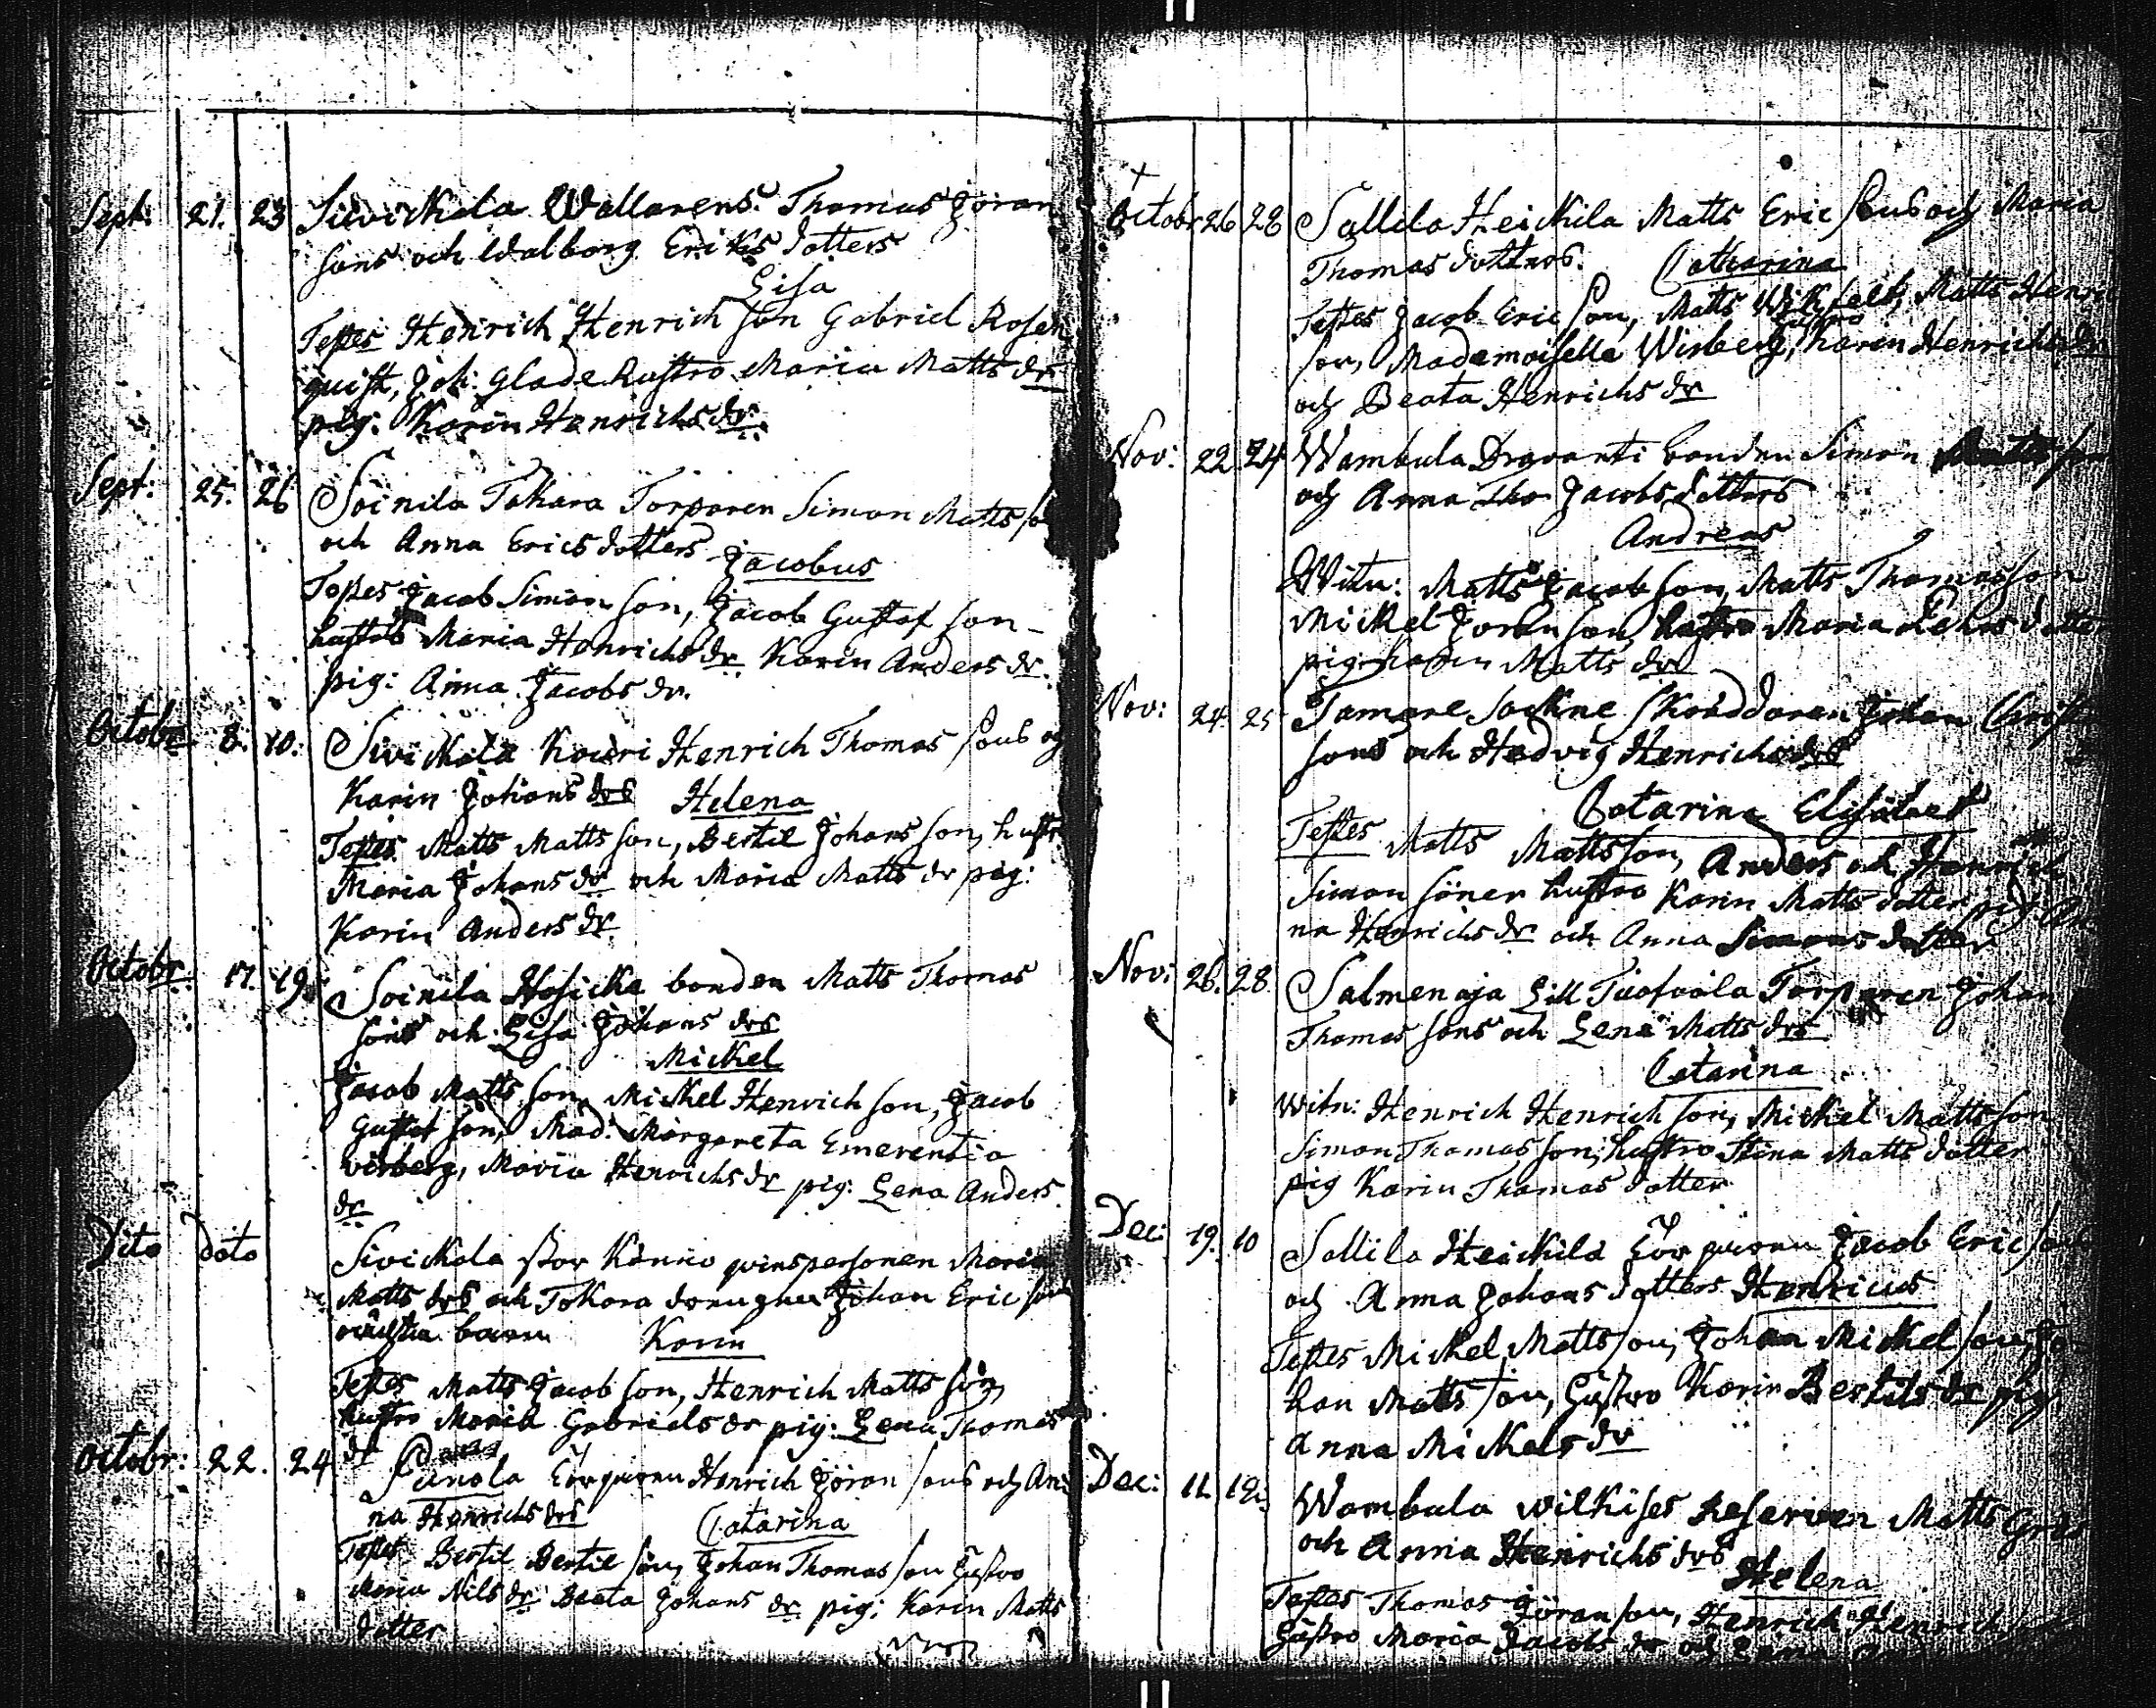 Sept: 21. 23 Siwickala Wallarens Thomas Jöran
sons och Walborg Eriks dotters
Lisa
Testes Henrich Henrich son Gabriel Rosen
quist, Joh: Glad Hustro Maria Matts dr
pig: Karin Henrichs dr.
Sept: 25. 26 Soinila Tokara Torparen Simon Matts so
och Anna Erics dotters Jacobus
Testes Jacob Simon son, Jacob Gustaf son
hustro Maria Henrichs dr. Karin Anders dr.
pig: Anna Jacobs dr.
Octobr 8. 10. Siwickala Kouri Henrich Thomas sons og
Karin Johans drs Helena
Testes Matts Matts son, Bertil Johans son, hustr
Maria Johans dr och Maria Matts dr pig:
Karin Anders dr.
Octobr. 17. 19. Soinila Hosicka bonden Matts Thomas
sons och Lisa Johans drs
Mickel
Jacob Matts son, Mickel Henrich son, Jacob
Gustaf son, Mad: Margareta Emerentia
Wirberg, Maria Henrichs dr pig: Lena Anders
dr
Dito Dato Siwickala stor qvinspersonen Maria
Matts drs och Tokora Johan Eric sons
oächta barn Karin
Testes Matts Jacob son, Henrich Matts son,
hustro Maria Gabriels dr pig: Lena Thomas
dr
Octobr: 22. 24 Punola Henrich Jöran sons och An:
na Henrichs drs Catarina
Testes Bertil Bertil son, Johan Thomas son Hustro
Maria Nils dr. Beata Johans dr pig: Karin Matts
dotter
Octobr 26 28 Sallila Heickila Matts Eric sons och Maria
Thomas dotters. Catharina
Testes Jacob Eric son, Matts Wikfelt, Matts Henric
hustro
son, Mademoiselle Wirberg, Karin Henrichs dr
och Beata Henrichs dr
Nov: 22 24 Wambula bonden Simon Matts son
och Anna Jacobs dotters
Andreas
Witn: Matts Jacob son, Matts Thomasson
Mickel Joran son, hustro Maria dotter
pig Karin Matts dr
Nov: 24. 25 Tamare Sockne Skräddaren Johan Christ
sons och Hedvig Henrichs drs
Catarina Elisabet
Testes Matts Matts son, Anders och Henrich
Simon söner hustro Karin Matts dotter pig An
na Henrichs dr och Anna Simons dotter
Nov: 26. 28. Salmenoja Torparen Johan
Thomas sons och Lena Matts drs
Catarina
Witn: Henrich Henrich son, Mickel Matts son
Simon Thomas son, hustro Stina Matts dotter
pig Karin Thomas dotter
Dec: 19. 10 Sallila Heickila Jacob Eric sons
och Anna Johans dotters Henricus
Testes Mickel Matts son, Johan Mickel son, Jo
han Matts son, Hustro Karin Bertils dr pig
Anna Mickels dr
Dec: 11. 12. Wambula Wilkises Reserven Matts
och Anna Henrichs drs
Helena
Testes Thomas Jöran son, Henrich Henrich
Hustro Maria Jacobs dr och